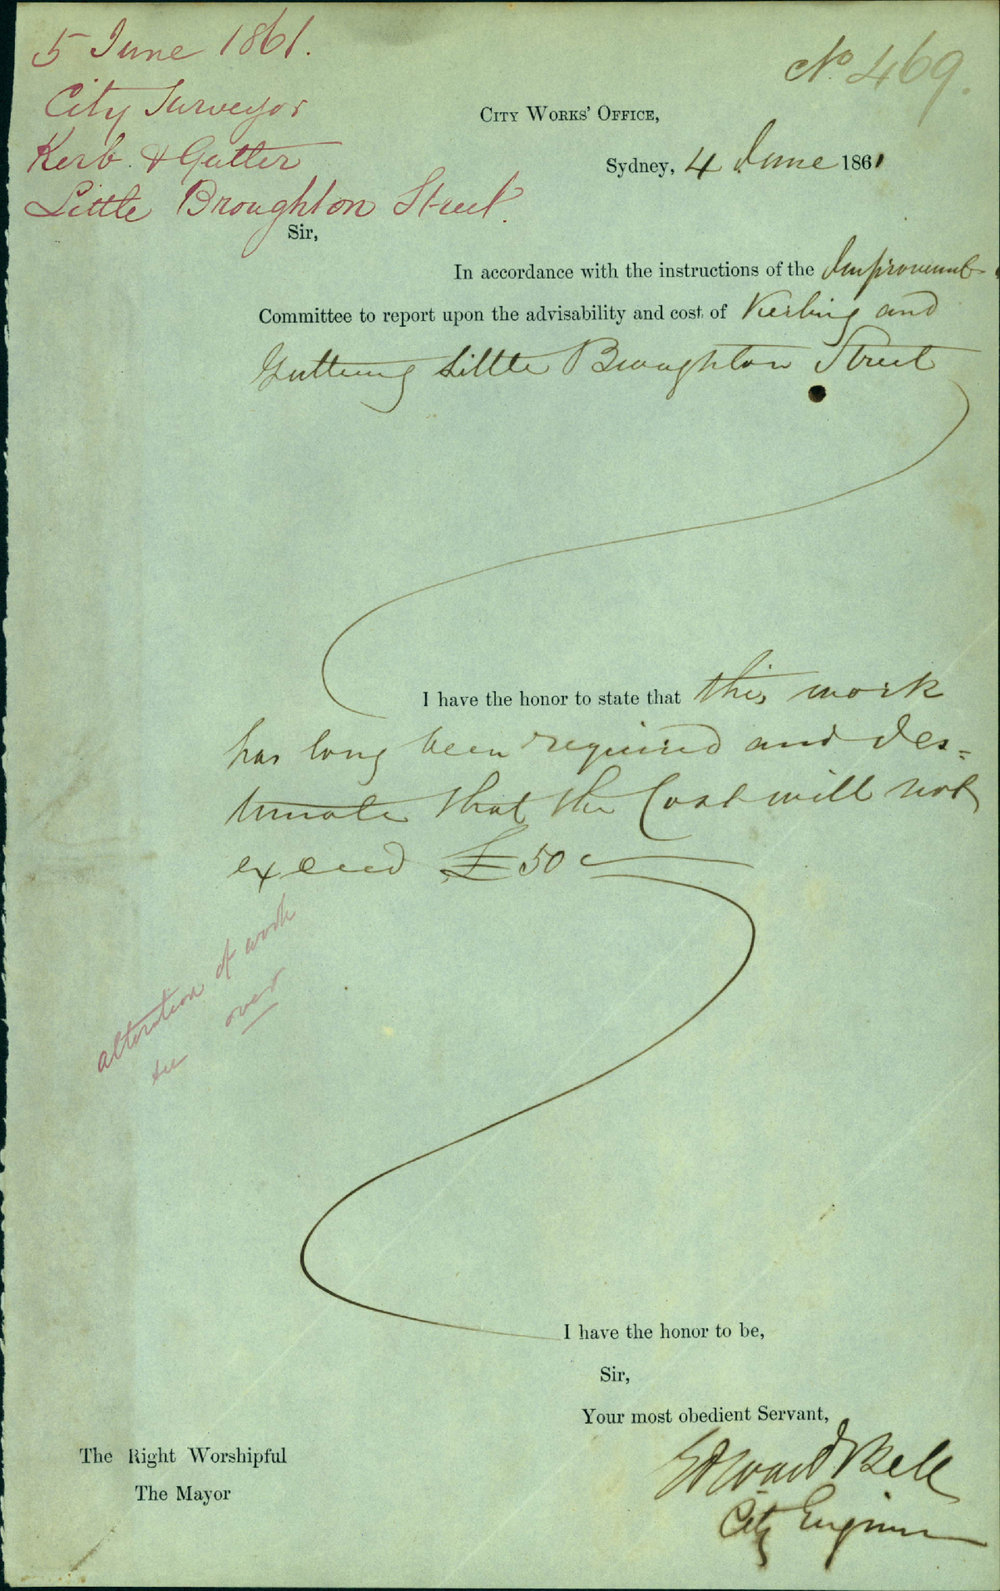 5 June 1861.
City Surveyor
Kerb & Gutter
Little Broughton Street.
No 469.
City Works' Office,
Sydney, 4 June 1861
Sir,
In accordance with the instructions of the Improvement
Committee to report upon the advisability and cost of Kerbing and
Guttering Little Broughton Street
I have the honor to state that this work
has long been required and I es=
timate that the Cost will not
exceed £50
alteration of work
see over
I have the honor to be,
Sir,
Your most obedient Servant,
Edward Bell
City Engineer
The Right Worshipful
The Mayor